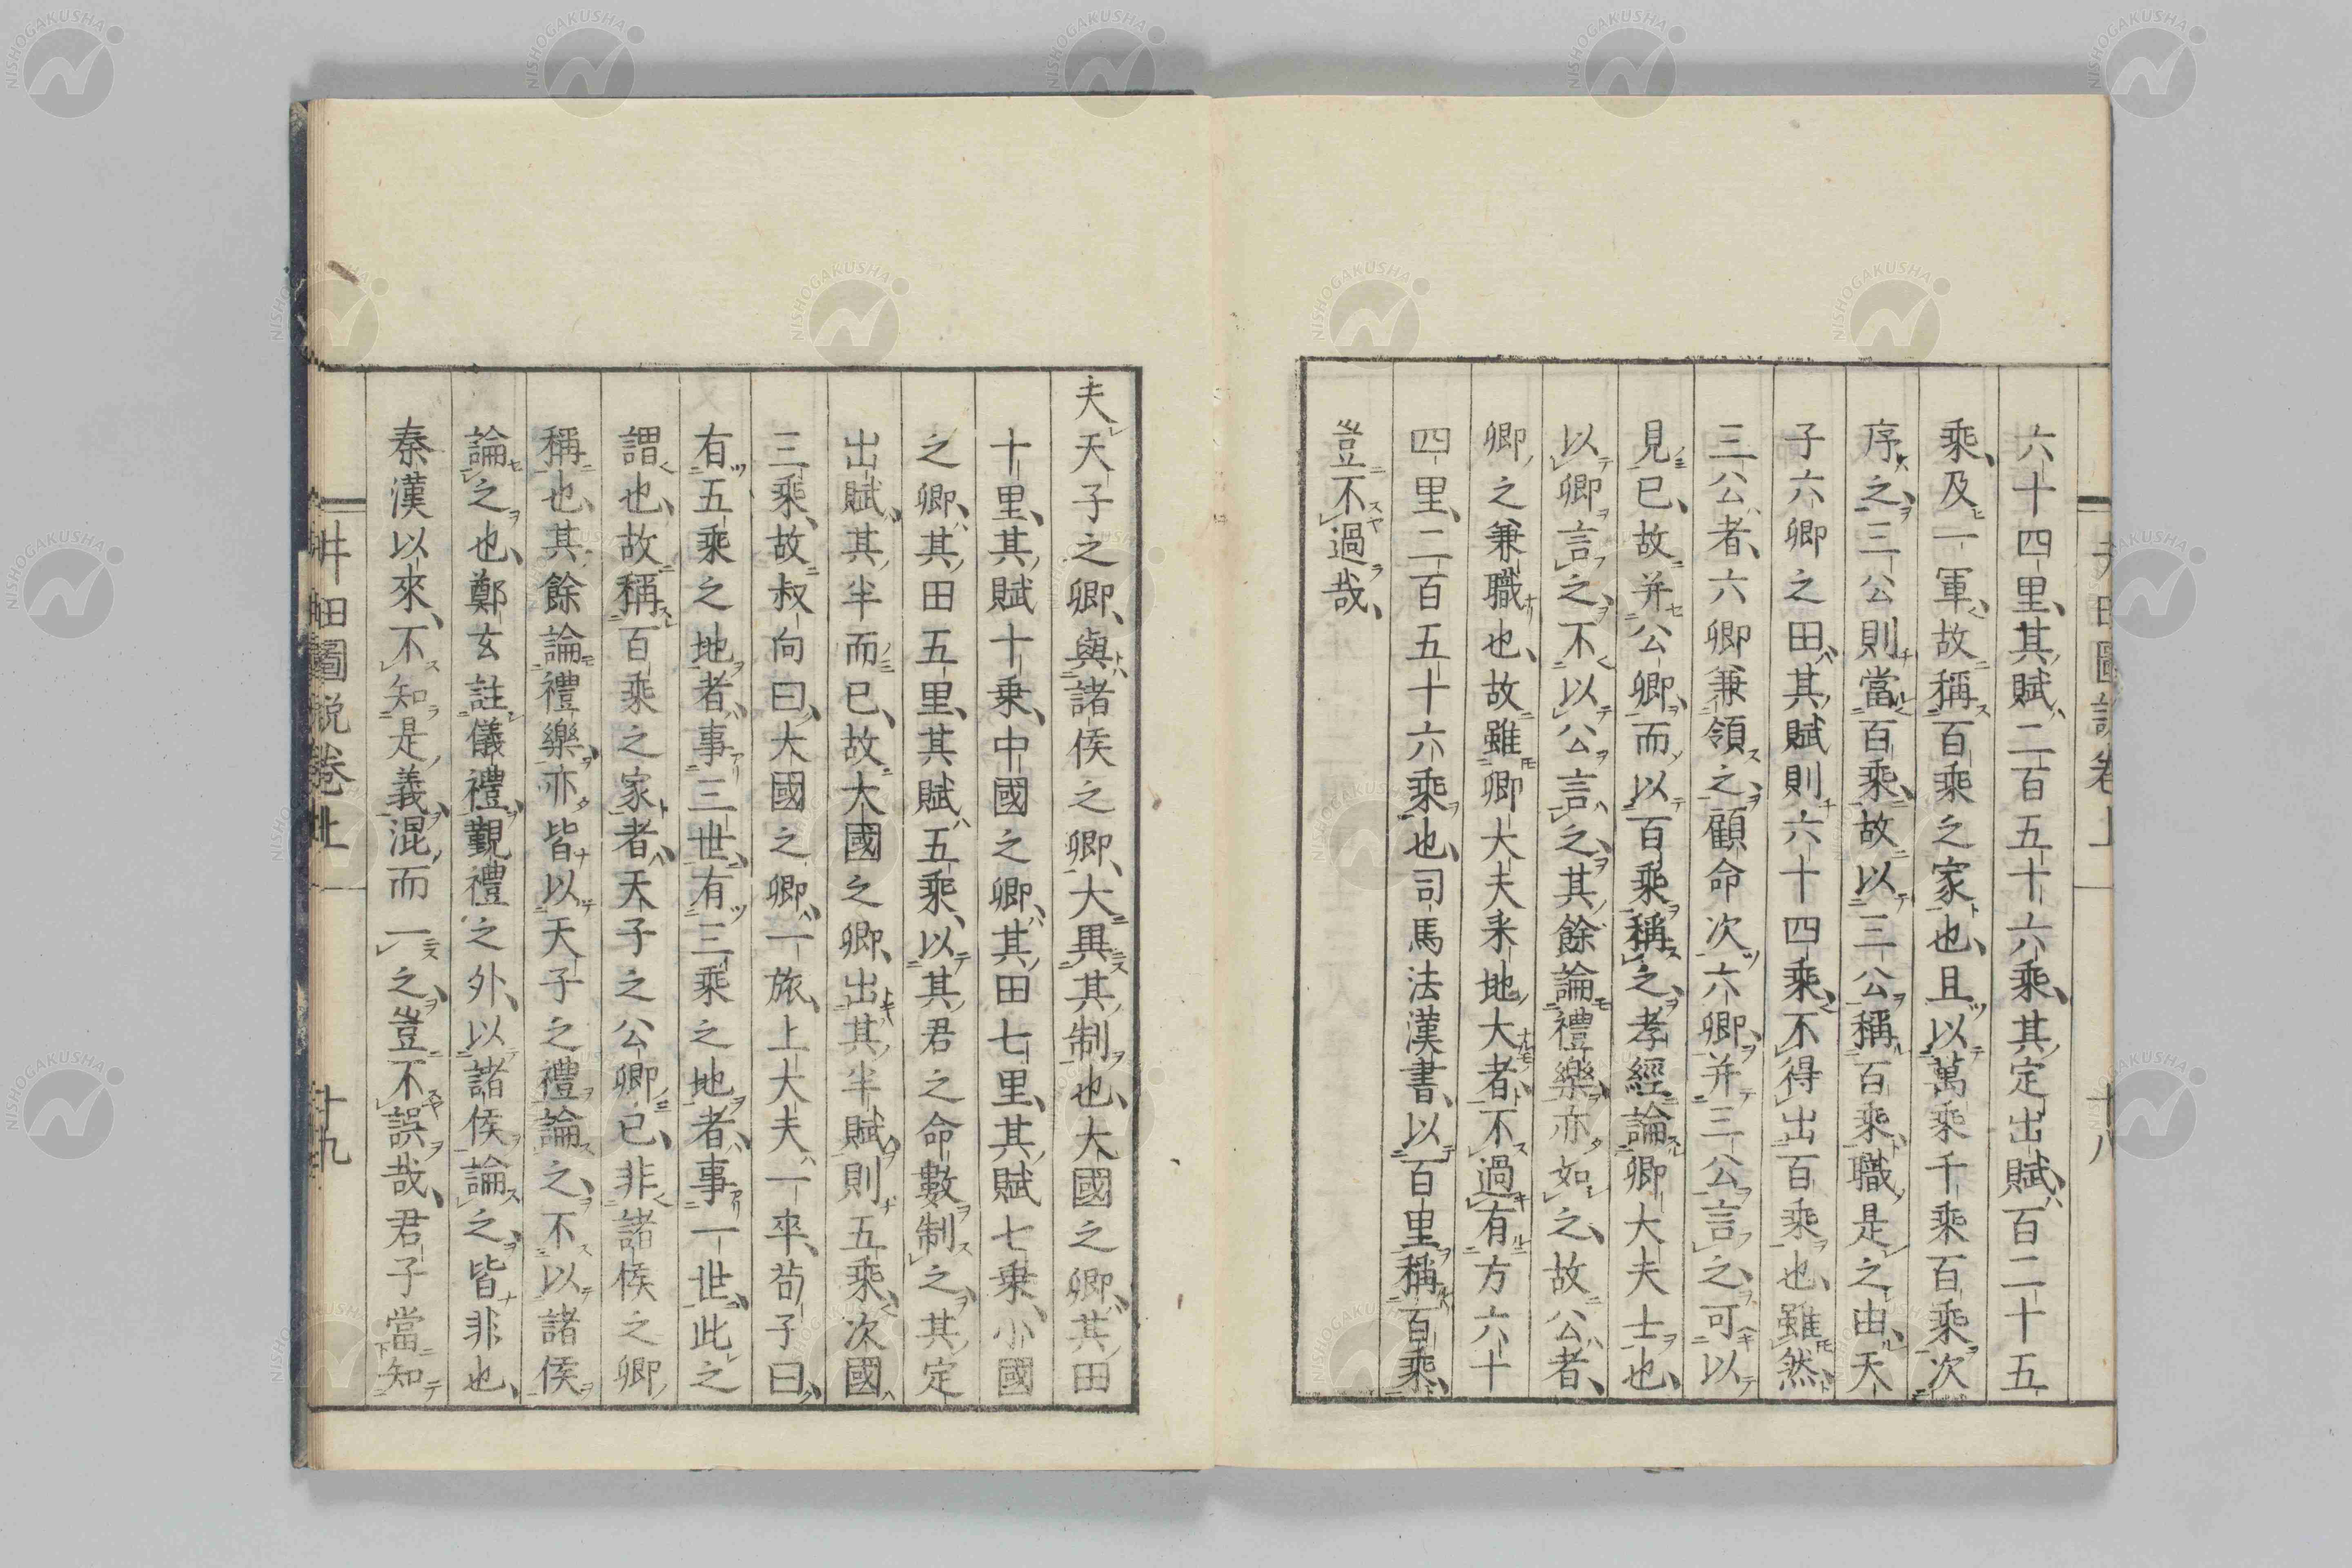 六十四里、其賦二百五十六乘、其定出賦、百二十五
乘、及一軍、故稱百乘之家也、且以萬乘千乘百乘次
序之、三公則當百乘、故以三公稱百乘、職是之由、天
子六卿之田、其賦則六十四乘、不得出百乘也、雖然、
三公者、六卿兼領之、顧命次六卿、并三公言之、可以
見已、故并公卿、而以百乘稱之、孝經論卿大夫士也、
以卿言之、不以公言之、其餘論禮樂、亦如之、故公者、
卿之兼職也、故雖卿大夫采地大者、不過有方六十
四里、二百五十六乘也、司馬法漢書、以百里稱百乘、
豈不過哉、
夫天子之卿、與諸侯之卿、大異其制也、大國之卿、其田
十里、其賦十乘、中國之卿、其田七里、其賦七乘、小國
之卿、其田五里、其賦五乘、以其君之命數制之、其定
出賦、其半而已、故大國之卿、出其半賦、則五乘、次國
三乘、故叔向曰、大國之卿、一旅、上大夫一卒、荀子曰、
有五乘之地者、事三世、有三乘之地者、事二世、此之
謂也、故稱百乘之家者、天子之公卿已、非諸侯之卿
稱也、其餘論禮樂、亦皆以天子之禮論之、不以諸侯
論之也、鄭玄註儀禮、覲禮之外、以諸侯論之、皆非也、
秦漢以來、不知是義、混而一之、豈不誤哉、君子當知
井田圖說卷上
十九
十八
NISHOGAKUSHA